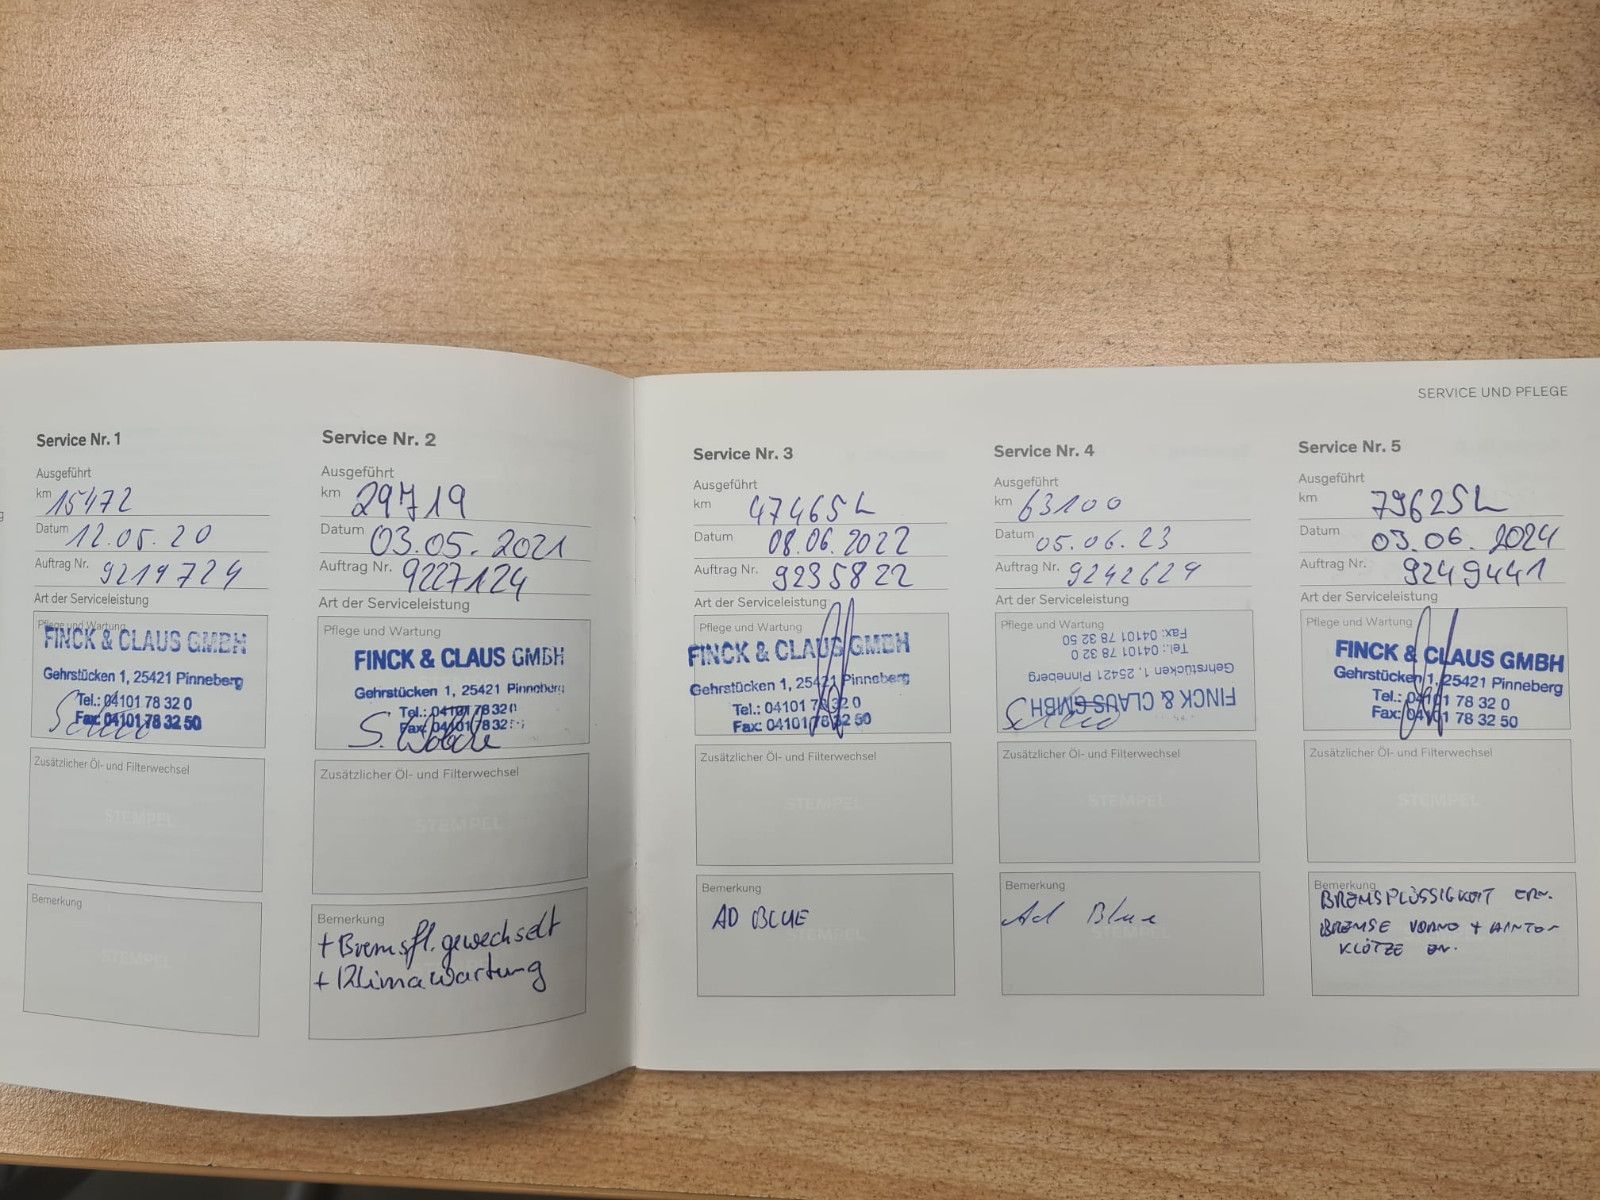 SERVICE UND PFLEGE
Service Nr. 1
Ausgeführt
km 15472
Datum 12.05.20
Auftrag Nr. 9219724
Art der Serviceleistung
Pflege und Wartung
FINCK & CLAUS GMBH
Gehrstücken 1, 25421 Pinneberg
Tel.: 04101 78 32 0
Fax: 04101 78 32 50
Zusätzlicher Öl- und Filterwechsel
STEMPEL
Bemerkung
STEMPEL
Service Nr. 2
Ausgeführt
km 29719
Datum 03.05.2021
Auftrag Nr. 9227124
Art der Serviceleistung
Pflege und Wartung
FINCK & CLAUS GMBH
Gehrstücken 1, 25421 Pinneberg
Tel.: 04101 78 32 0
Fax: 04101 78 32
Zusätzlicher Öl- und Filterwechsel
STEMPEL
Bemerkung
+ Bremsfl. gewechselt
+ Klimawartung
Service Nr. 3
Ausgeführt
km 47465
Datum 08.06.2022
Auftrag Nr. 9235822
Art der Serviceleistung
Pflege und Wartung
FINCK & CLAUS GMBH
Gehrstücken 1, 25421 Pinneberg
Tel.: 04101 78 32 0
Fax: 04101 78 32 50
Zusätzlicher Öl- und Filterwechsel
STEMPEL
Bemerkung
AD BLUE
STEMPEL
Service Nr. 4
Ausgeführt
km 63100
Datum 05.06.23
Auftrag Nr. 9242629
Art der Serviceleistung
Pflege und Wartung
FINCK & CLAUS GMBH
Gehrstücken 1, 25421 Pinneberg
Tel.: 04101 78 32 0
Fax: 04101 78 32 50
Zusätzlicher Öl- und Filterwechsel
STEMPEL
Bemerkung
Ad Blue
STEMPEL
Service Nr. 5
Ausgeführt
km 79625
Datum 03.06.2024
Auftrag Nr. 9249441
Art der Serviceleistung
Pflege und Wartung
FINCK & CLAUS GMBH
Gehrstücken 1, 25421 Pinneberg
Tel.: 04101 78 32 0
Fax: 04101 78 32 50
Zusätzlicher Öl- und Filterwechsel
STEMPEL
Bemerkung
BREMSFLÜSSIGKEIT ERN.
BREMSE VORNE + HINTEN
KLÖTZE